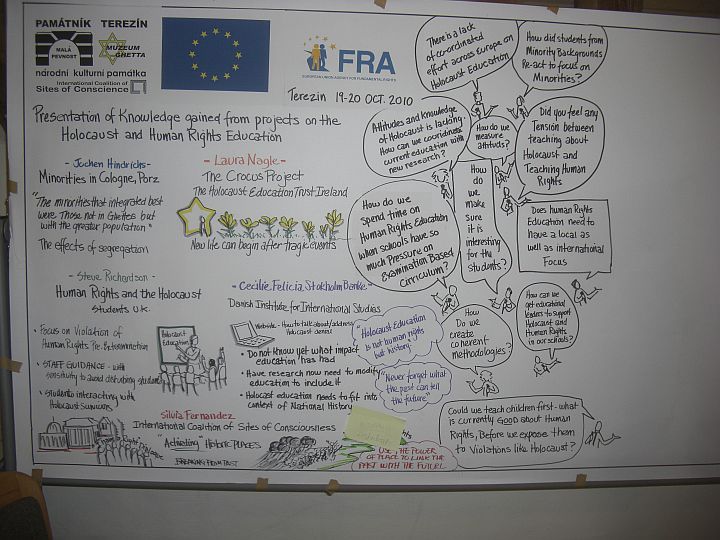 PAMÁTNÍK TEREZÍN
MALÁ
PEVNOST
MUZEUM
GHETTA
národní kulturní památka
International Coalition of
Sites of Conscience
FRA
EUROPEAN UNION AGENCY FOR FUNDAMENTAL RIGHTS
Terezin 19-20 OCT. 2010
Presentation of Knowledge gained from projects on the
Holocaust and Human Rights Education
- Jochen Hindrichs -
Minorities in Cologne, Porz
"The minorities that integrated best
were Those not in Ghettos but
with the greater population"
The effects of segregation
- Laura Nagle -
The Crocus Project
The Holocaust Education Trust Ireland
New life can begin after tragic events
- Steve Richardson -
Human Rights and the Holocaust
Students U.K.
• Focus on Violation of
Human Rights Pre. Extermination
• STAFF GUIDANCE - with
sensitivity to avoid disturbing students
• Students interacting with
Holocaust Survivors
Holocaust
Education
- Cecilie, Felicia, Stokholm Banke -
Danish Institute for International Studies
Website - How to talk about/address
Holocaust denial
• Do not know yet what impact
education has had
• Have research now need to modify
education to include it
• Holocaust education needs to fit into
context of National History
Silvia Fernandez
International Coalition of Sites of Consciousness
"Activating" Historic PLACES
"Holocaust Education
is not human rights
but history"
"Never forget what
the past can tell
the future"
USE THE POWER
OF PLACE TO LINK THE
PAST WITH THE FUTURE
There is a lack
of co-ordinated
effort across Europe on
Holocaust Education
How did students from
Minority Backgrounds
Re-act to focus on
Minorities?
Attitudes and Knowledge
of Holocaust is lacking.
How can we coordinate
current education with
new research?
How do we
measure
attituds?
Did you feel any
Tension between
teaching about
Holocaust and
Teaching Human
Rights
How do we
Spend time on
Human Rights Education
when schools have so
much Pressure on
Examination Based
Curriculum?
How
do
we
make
sure
it is
interesting
for the
students?
Does human Rights
Education need to
have a local as
well as international
Focus
How
Do we
create
coherent
methodologies?
How can we
get educational
leaders to support
Holocaust and
Human Rights
in our schools?
Could we teach children first - what
is currently GOOD about Human
Rights, Before we expose them
to Violations like Holocaust?